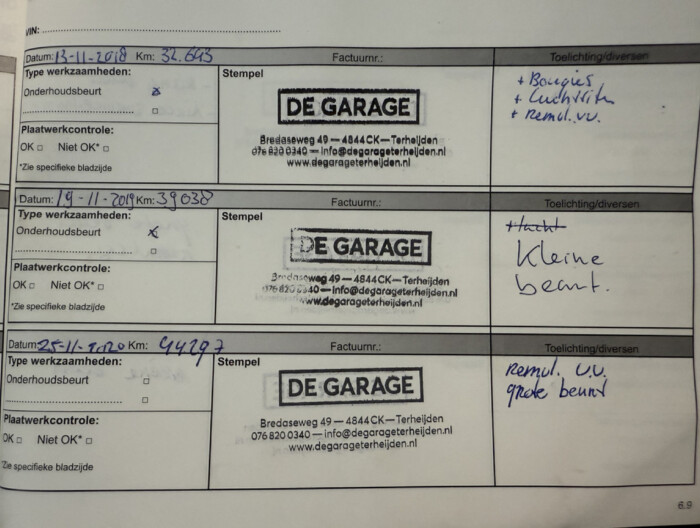 VIN:
Datum: 13-11-2018 Km: 32.643 Factuurnr.: Toelichting/diversen
Type werkzaamheden: Stempel
Onderhoudsbeurt
DE GARAGE
Bredaseweg 49 — 4844CK — Terheijden
076 820 0340 — info@degarageterheijden.nl
www.degarageterheijden.nl
+ Bougies
+ Luchtfilter
+ Remvl. vv.
Plaatwerkcontrole:
OK Niet OK*
*Zie specifieke bladzijde
Datum: 19-11-2019 Km: 39038 Factuurnr.: Toelichting/diversen
Type werkzaamheden: Stempel
Onderhoudsbeurt
DE GARAGE
Bredaseweg 49 — 4844CK — Terheijden
076 820 0340 — info@degarageterheijden.nl
www.degarageterheijden.nl
Kleine
beurt.
Plaatwerkcontrole:
OK Niet OK*
*Zie specifieke bladzijde
Datum: 25-11-2020 Km: 44297 Factuurnr.: Toelichting/diversen
Type werkzaamheden: Stempel
Onderhoudsbeurt
DE GARAGE
Bredaseweg 49 — 4844CK — Terheijden
076 820 0340 — info@degarageterheijden.nl
www.degarageterheijden.nl
Remvl. v.v.
grote beurt
Plaatwerkcontrole:
OK Niet OK*
*Zie specifieke bladzijde
6.9